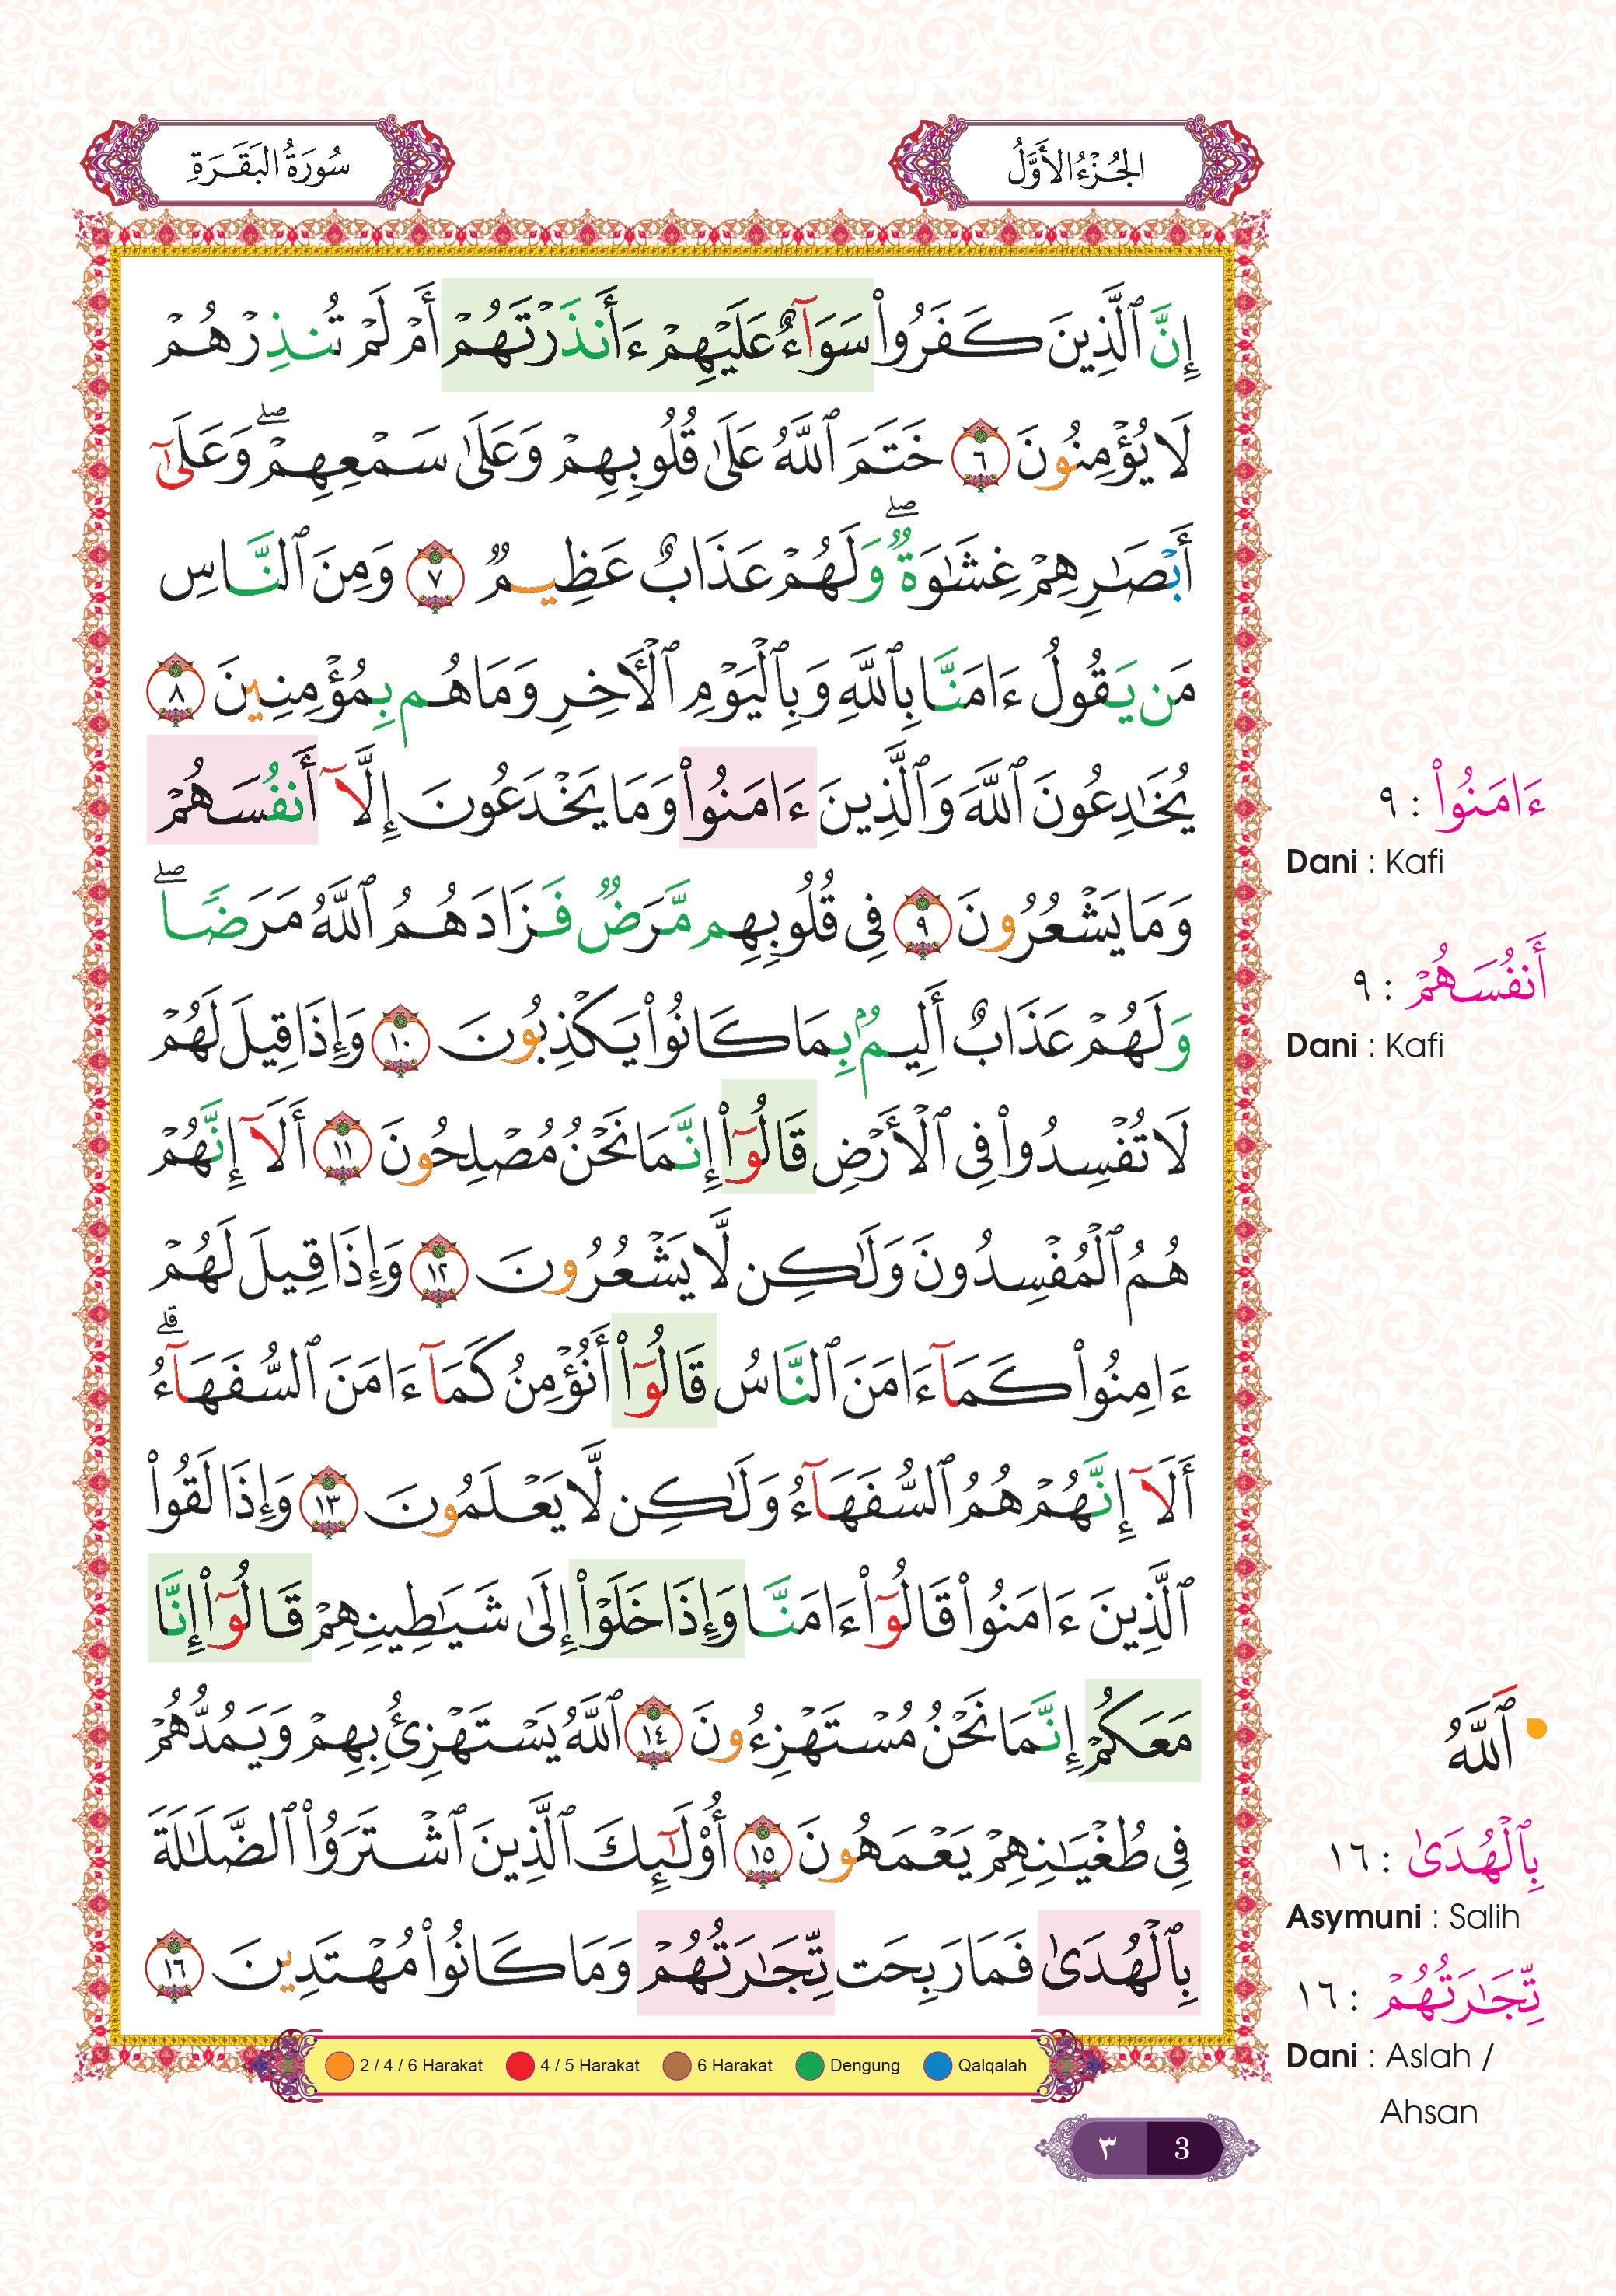 الجُزْءُ الأَوَّلُ
سُورَةُ البَقَرَةِ
إِنَّ ٱلَّذِينَ كَفَرُوا۟ سَوَآءٌ عَلَيْهِمْ ءَأَنذَرْتَهُمْ أَمْ لَمْ تُنذِرْهُمْ
لَا يُؤْمِنُونَ ٦ خَتَمَ ٱللَّهُ عَلَىٰ قُلُوبِهِمْ وَعَلَىٰ سَمْعِهِمْ ۖ وَعَلَىٰٓ
أَبْصَـٰرِهِمْ غِشَـٰوَةٌ ۖ وَلَهُمْ عَذَابٌ عَظِيمٌ ٧ وَمِنَ ٱلنَّاسِ
مَن يَقُولُ ءَامَنَّا بِٱللَّهِ وَبِٱلْيَوْمِ ٱلْـَٔاخِرِ وَمَا هُم بِمُؤْمِنِينَ ٨
يُخَـٰدِعُونَ ٱللَّهَ وَٱلَّذِينَ ءَامَنُوا۟ وَمَا يَخْدَعُونَ إِلَّآ أَنفُسَهُمْ
وَمَا يَشْعُرُونَ ٩ فِى قُلُوبِهِم مَّرَضٌ فَزَادَهُمُ ٱللَّهُ مَرَضًا ۖ
وَلَهُمْ عَذَابٌ أَلِيمٌۢ بِمَا كَانُوا۟ يَكْذِبُونَ ١٠ وَإِذَا قِيلَ لَهُمْ
لَا تُفْسِدُوا۟ فِى ٱلْأَرْضِ قَالُوٓا۟ إِنَّمَا نَحْنُ مُصْلِحُونَ ١١ أَلَآ إِنَّهُمْ
هُمُ ٱلْمُفْسِدُونَ وَلَـٰكِن لَّا يَشْعُرُونَ ١٢ وَإِذَا قِيلَ لَهُمْ
ءَامِنُوا۟ كَمَآ ءَامَنَ ٱلنَّاسُ قَالُوٓا۟ أَنُؤْمِنُ كَمَآ ءَامَنَ ٱلسُّفَهَآءُ ۗ
أَلَآ إِنَّهُمْ هُمُ ٱلسُّفَهَآءُ وَلَـٰكِن لَّا يَعْلَمُونَ ١٣ وَإِذَا لَقُوا۟
ٱلَّذِينَ ءَامَنُوا۟ قَالُوٓا۟ ءَامَنَّا وَإِذَا خَلَوْا۟ إِلَىٰ شَيَـٰطِينِهِمْ قَالُوٓا۟ إِنَّا
مَعَكُمْ إِنَّمَا نَحْنُ مُسْتَهْزِءُونَ ١٤ ٱللَّهُ يَسْتَهْزِئُ بِهِمْ وَيَمُدُّهُمْ
فِى طُغْيَـٰنِهِمْ يَعْمَهُونَ ١٥ أُو۟لَـٰٓئِكَ ٱلَّذِينَ ٱشْتَرَوُا۟ ٱلضَّلَـٰلَةَ
بِٱلْهُدَىٰ فَمَا رَبِحَت تِّجَـٰرَتُهُمْ وَمَا كَانُوا۟ مُهْتَدِينَ ١٦
ءَامَنُوا۟ : ٩
Dani : Kafi
أَنفُسَهُمْ : ٩
Dani : Kafi
ٱللَّهُ
بِٱلْهُدَىٰ : ١٦
Asymuni : Salih
تِّجَـٰرَتُهُمْ : ١٦
Dani : Aslah /
Ahsan
2 / 4 / 6 Harakat 4 / 5 Harakat 6 Harakat Dengung Qalqalah
٣ 3